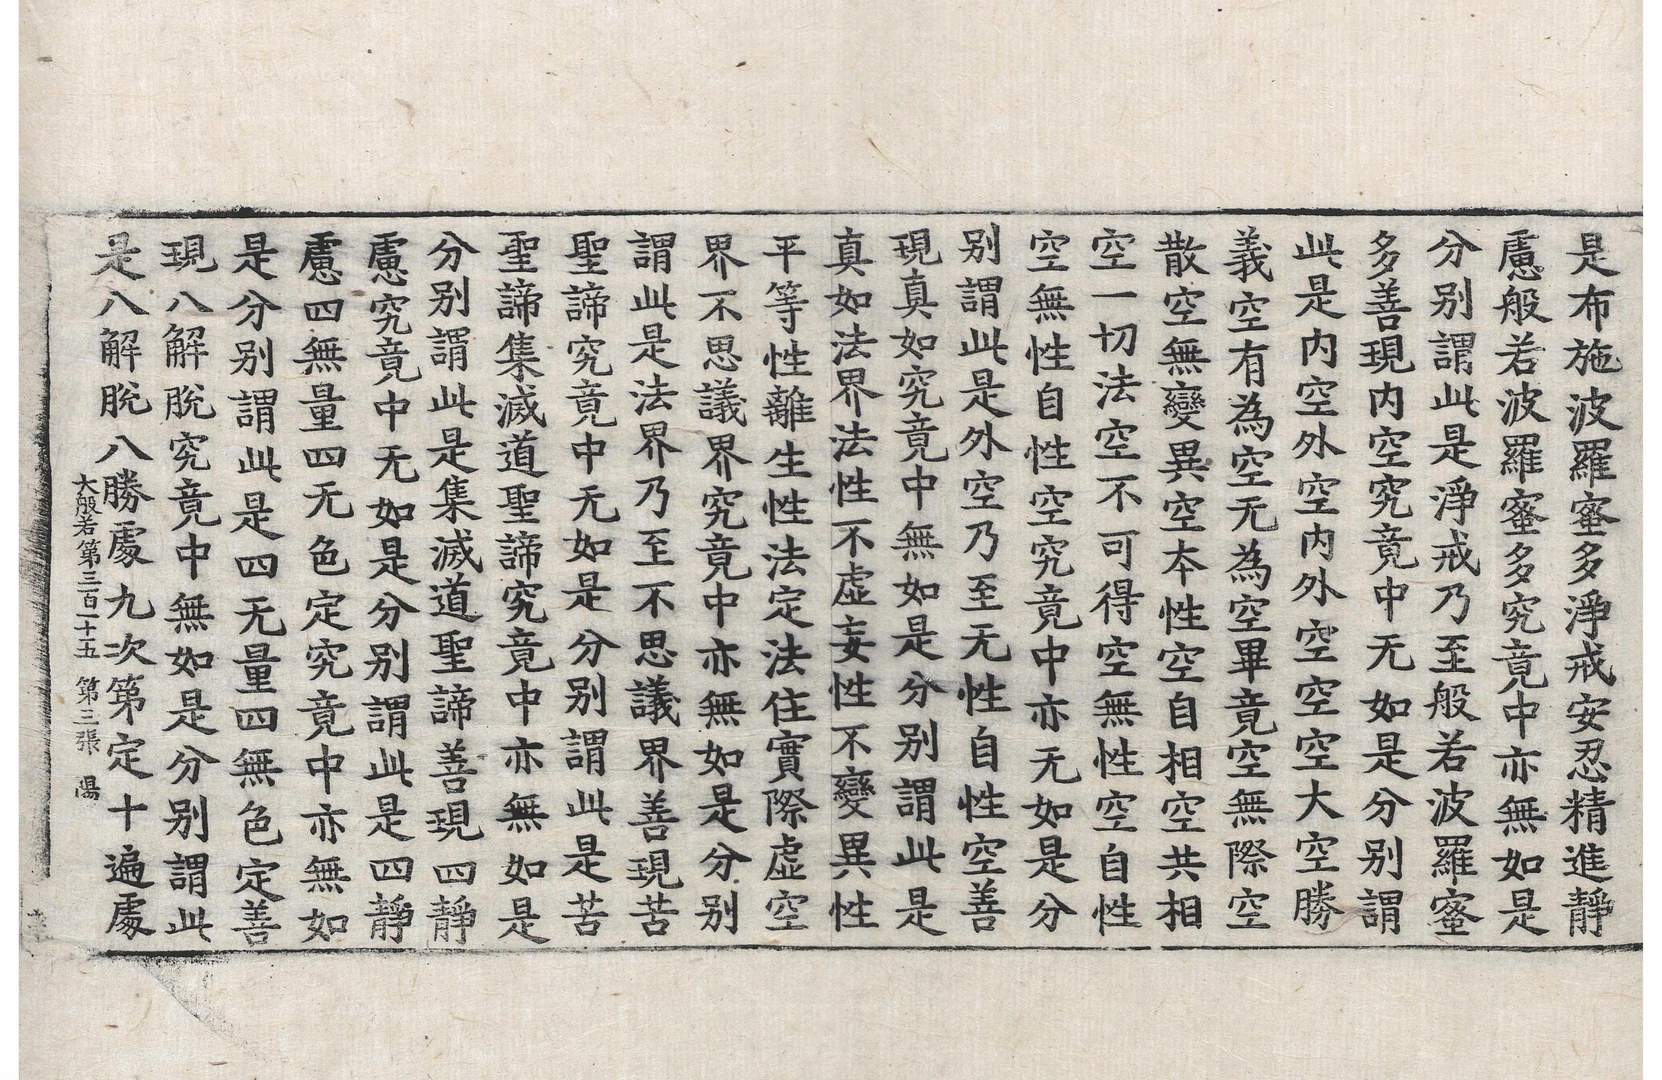 是布施波羅蜜多淨戒安忍精進靜
慮般若波羅蜜多究竟中亦無如是
分别謂此是淨戒乃至般若波羅蜜
多善現内空究竟中无如是分别謂
此是内空外空内外空空空大空勝
義空有為空无為空畢竟空無際空
散空無變異空本性空自相空共相
空一切法空不可得空無性空自性
空無性自性空究竟中亦无如是分
别謂此是外空乃至无性自性空善
現真如究竟中無如是分别謂此是
真如法界法性不虛妄性不變異性
平等性離生性法定法住實際虛空
界不思議界究竟中亦無如是分别
謂此是法界乃至不思議界善現苦
聖諦究竟中无如是分别謂此是苦
聖諦集滅道聖諦究竟中亦無如是
分别謂此是集滅道聖諦善現四靜
慮究竟中无如是分别謂此是四靜
慮四無量四无色定究竟中亦無如
是分别謂此是四无量四無色定善
現八解脫究竟中無如是分别謂此
是八解脫八勝處九次第定十遍處
大般若第三百二十五 第三張 陽